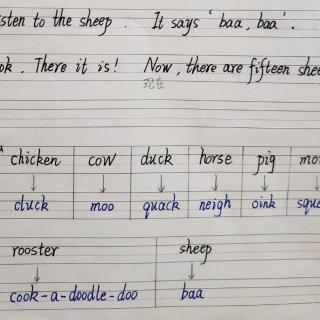 listen to the sheep. It says 'baa, baa'.
ok. There it is! Now, there are fifteen shee
现在
chicken cow duck horse pig mo
↓ ↓ ↓ ↓ ↓ ↓
cluck moo quack neigh oink sque
rooster sheep
↓ ↓
cook-a-doodle-doo baa